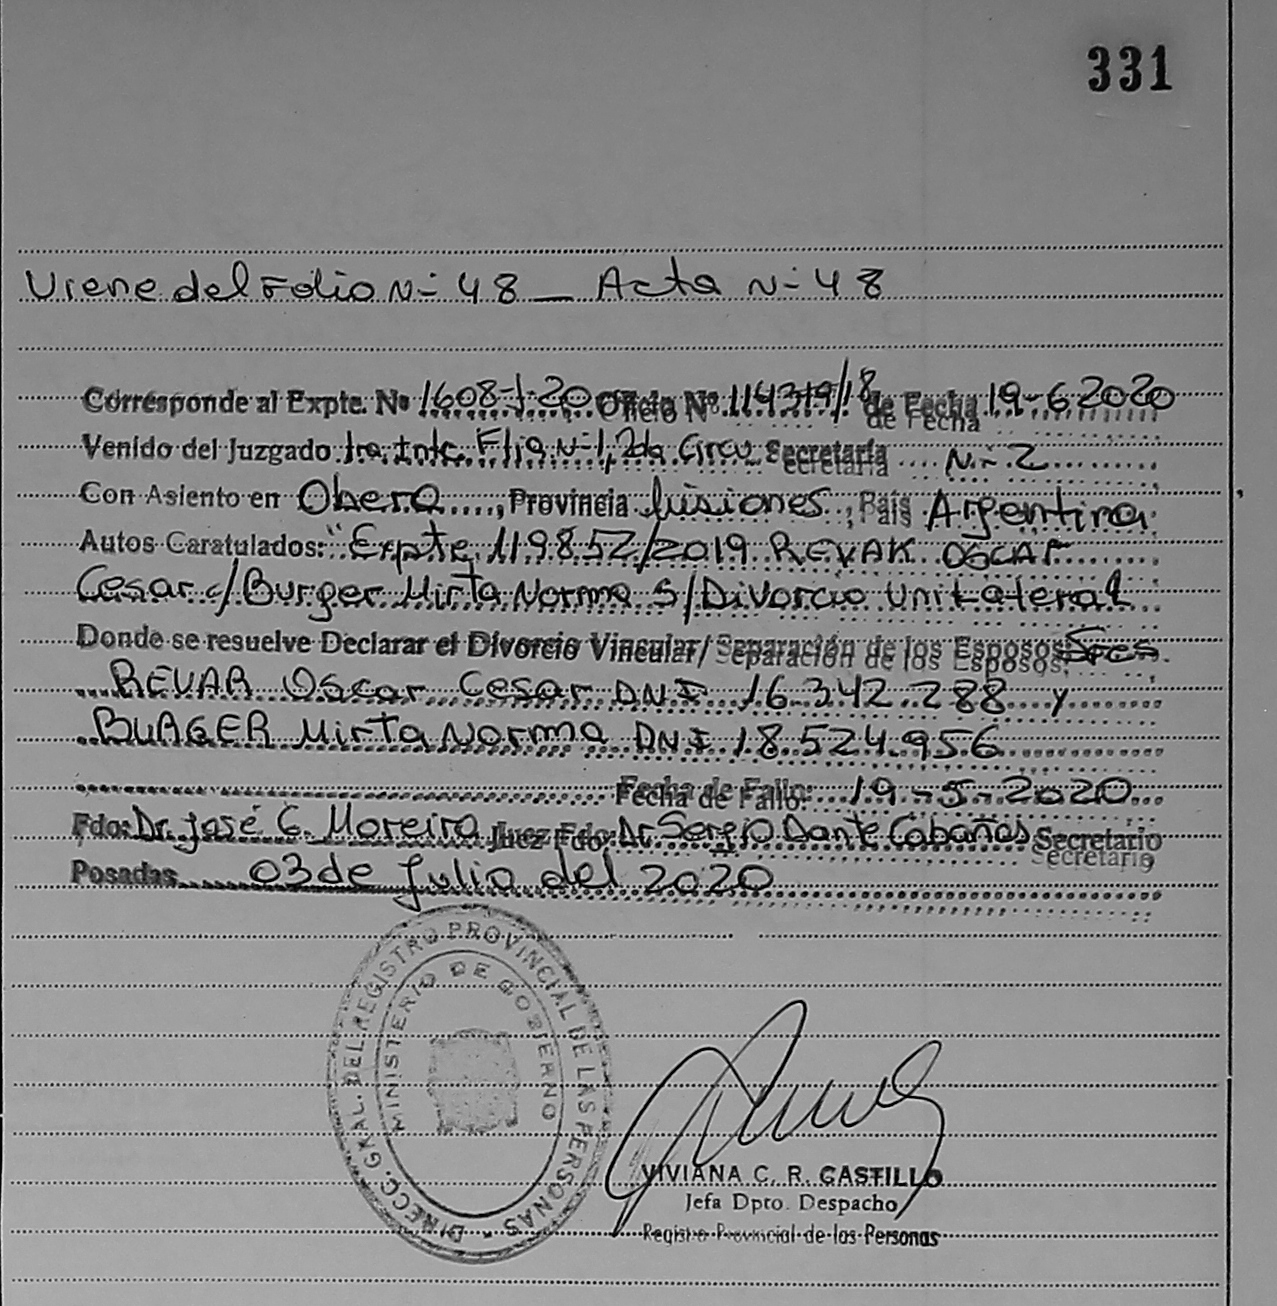 331
Viene del Folio N- 48 _ Acta N- 48
Corresponde al Expte. Nº 1608-I-20 Oficio Nº 114319/18 de Fecha 19-6 2020
Venido del Juzgado 1ra. Intc. Flia N-1, 2da Circu Secretaría N- 2
Con Asiento en Obera, Provincia Misiones, País Argentina
Autos Caratulados: "Expte. 119852/2019 REVAK OSCAR
Cesar c/ Burger Mirta Norma S/Divorcio Unilateral
Donde se resuelve Declarar el Divorcio Vincular/Separación de los Esposos Sres
REVAR Oscar Cesar DNI 16.342.288 y
BURGER Mirta Norma DNI 18.524.956
Fecha de Fallo: 19-5-2020
Fdo: Dr. José C. Moreira Juez Fdo: Dr Sergio Dante Cabañas Secretario
Posadas 03 de Julio del 2020
DIRECC. GRAL. DEL REGISTRO PROVINCIAL DE LAS PERSONAS
MINISTERIO DE GOBIERNO
VIVIANA C. R. CASTILLO
Jefa Dpto. Despacho
Registro Provincial de las Personas